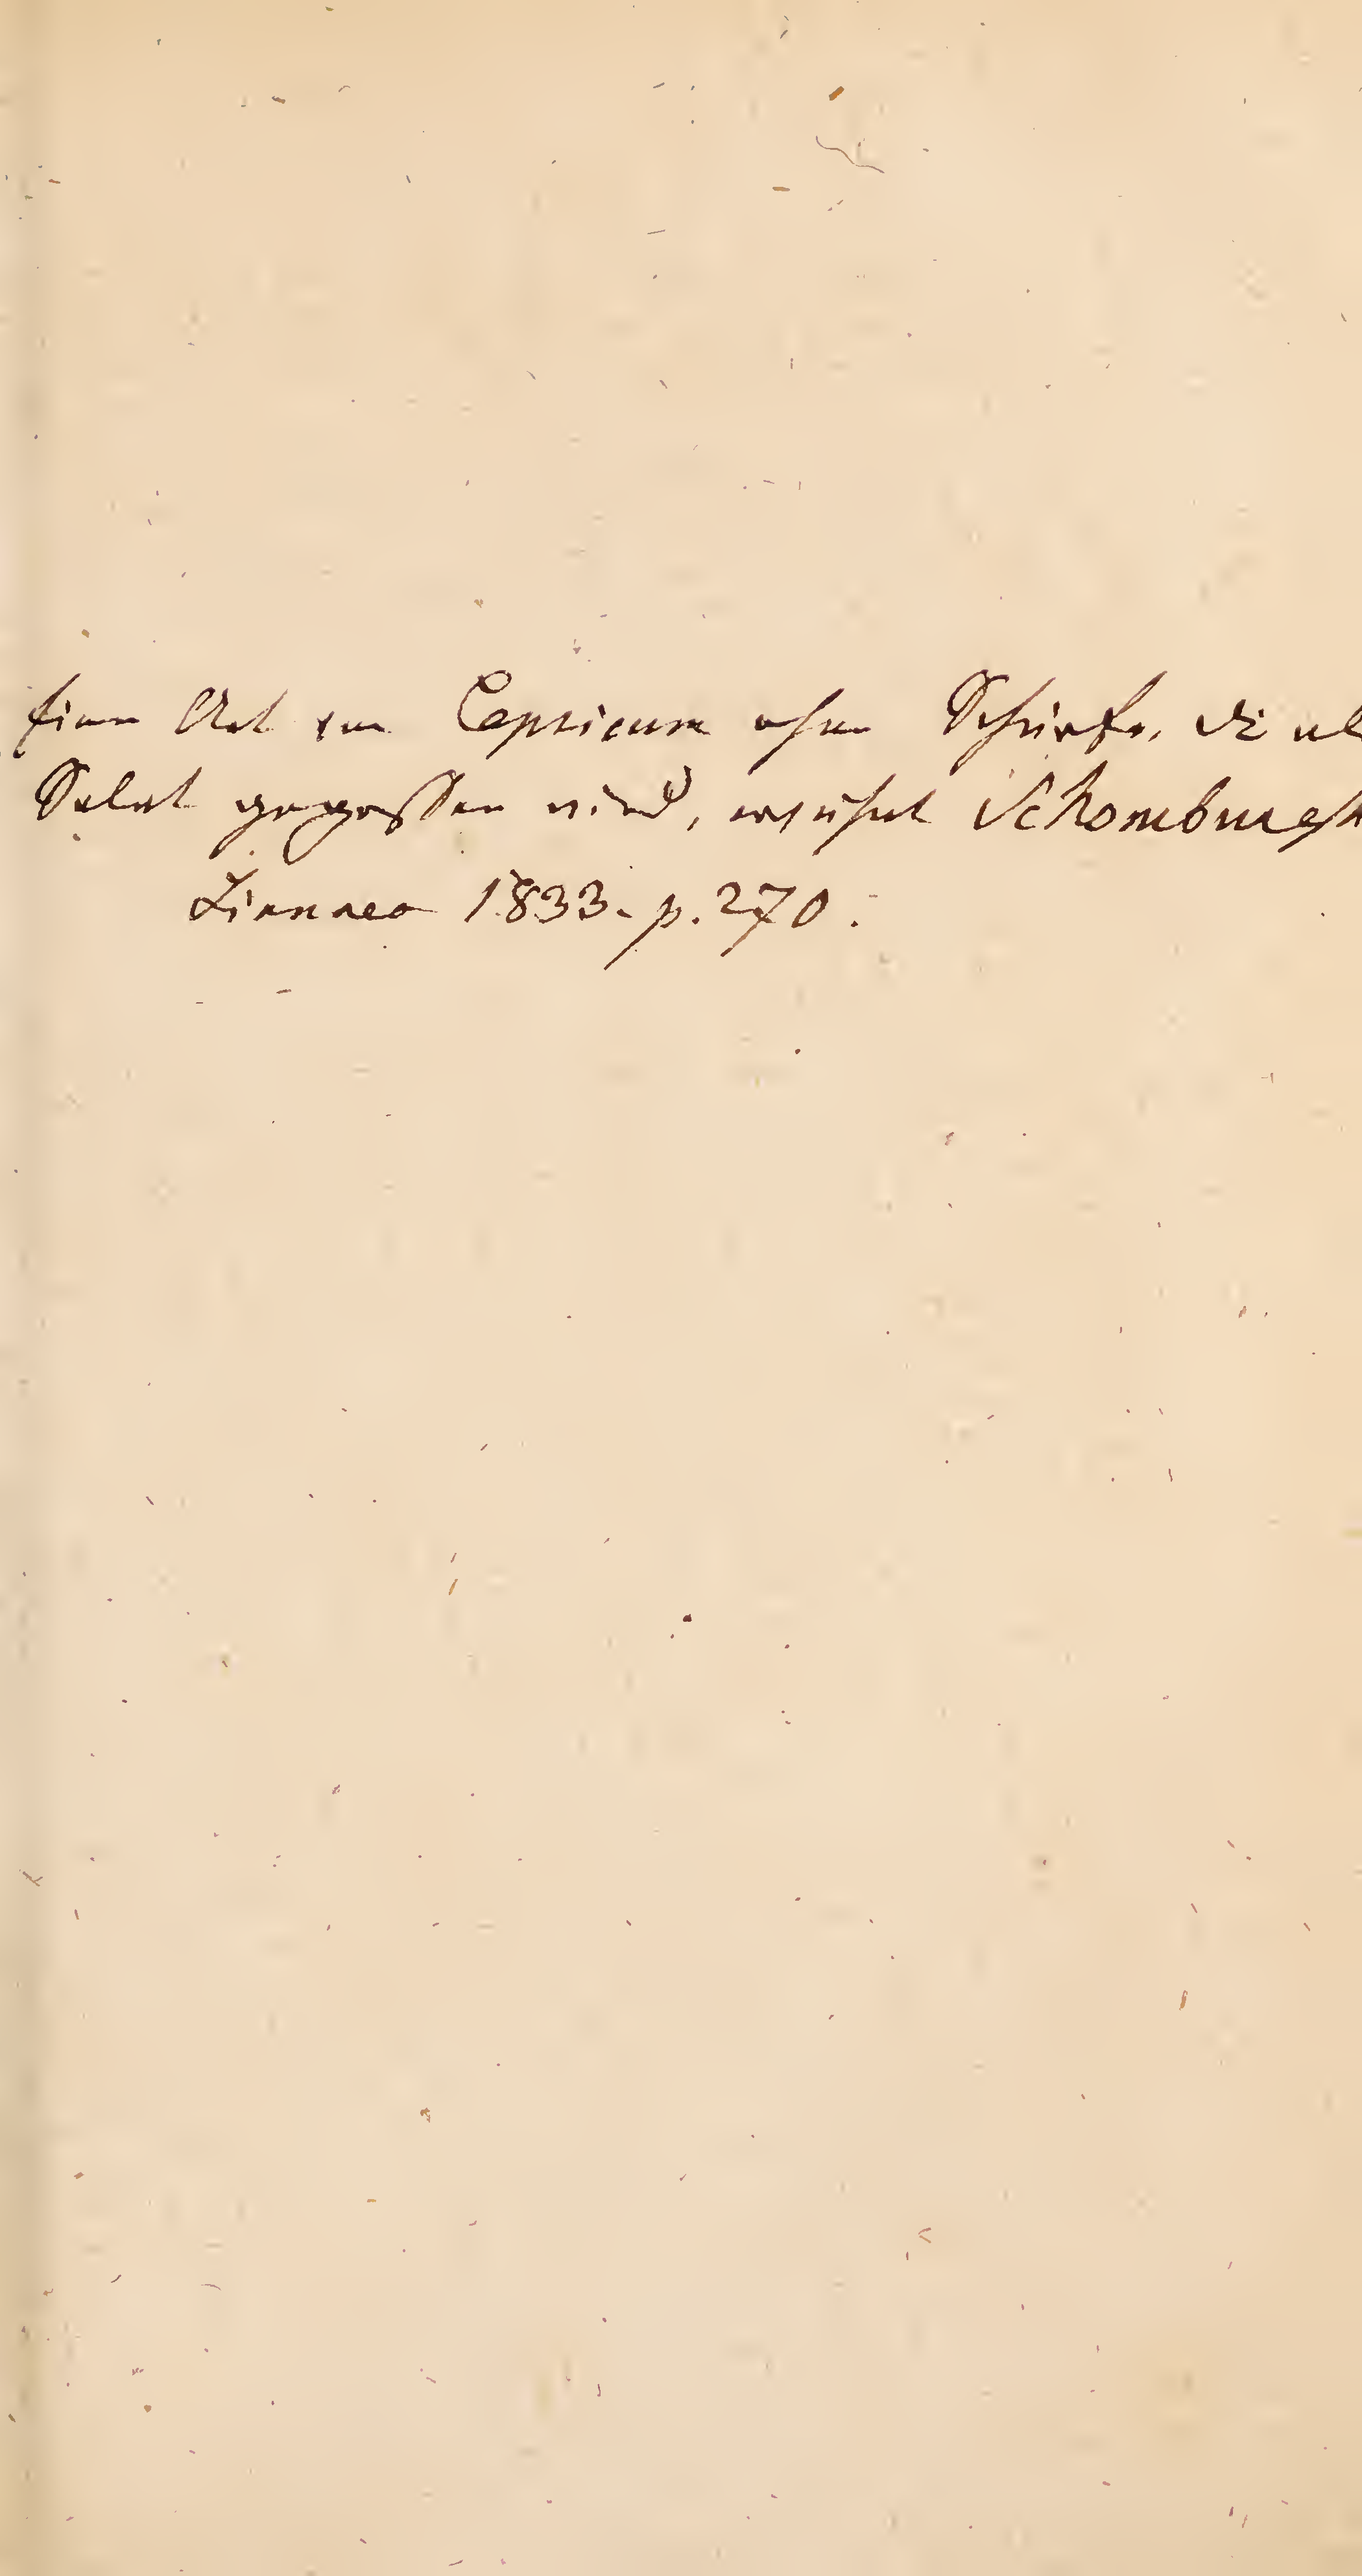 Eine Art von Capsicum ohne Schärfe, die als
Salat gegessen wird, erwähnt Schomburgk
Linnaea 1833. p. 270.